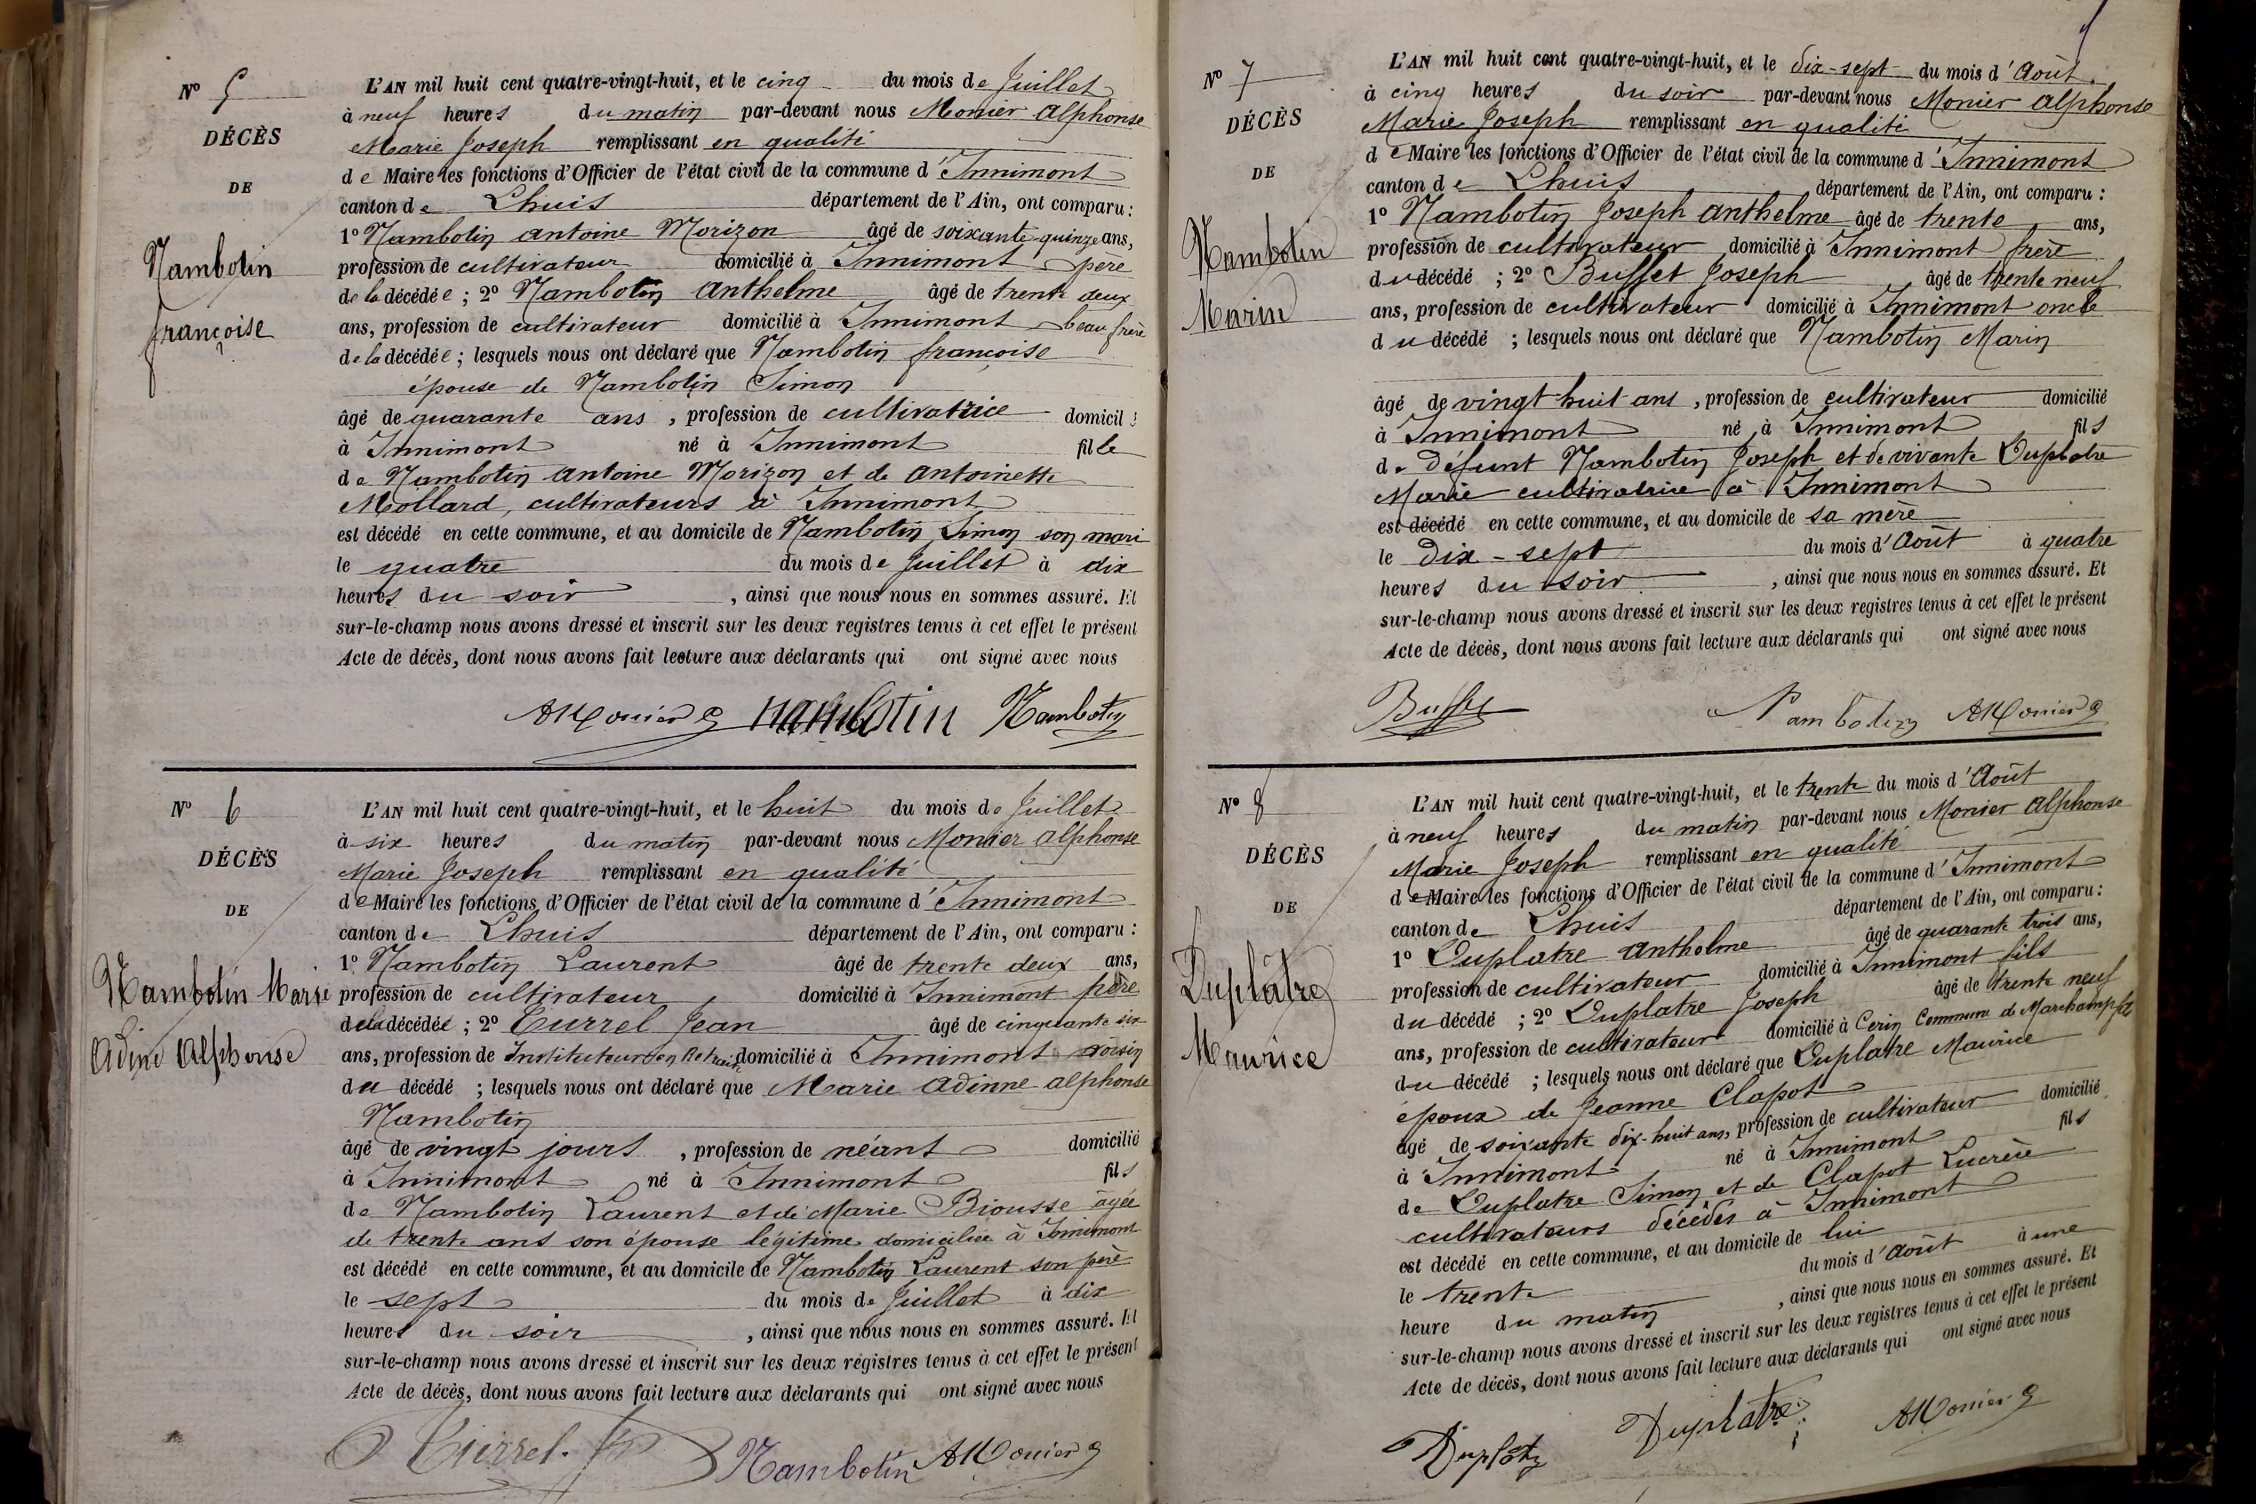 N° 5
DÉCÈS
DE
Nambotin
françoise
L'AN mil huit cent quatre-vingt-huit, et le cinq du mois de Juillet
à neuf heures du matin par-devant nous Monier Alphonse
Marie Joseph remplissant en qualité
de Maire les fonctions d'Officier de l'état civil de la commune d'Innimont
canton de Lhuis département de l'Ain, ont comparu :
1° Nambotin antoine Morizon âgé de soixante-quinze ans,
profession de cultivateur domicilié à Innimont père
de la décédée ; 2° Nambotin Anthelme âgé de trente deux
ans, profession de cultivateur domicilié à Innimont beau frère
de la décédée ; lesquels nous ont déclaré que Nambotin françoise
épouse de Nambotin Simon
âgé de quarante ans , profession de cultivatrice domicil
à Innimont né à Innimont fille
de Nambotin Antoine Morizon et de Antoinette
Mollard, cultivateurs à Innimont
est décédé en cette commune, et au domicile de Nambotin Simon son mari
le quatre du mois de Juillet à dix
heures du soir , ainsi que nous nous en sommes assuré. Et
sur-le-champ nous avons dressé et inscrit sur les deux registres tenus à cet effet le présent
Acte de décès, dont nous avons fait lecture aux déclarants qui ont signé avec nous
AMonier Nambotin Nambotin
N° 6
DÉCÈS
DE
Nambotin Marie
Adine Alphonse
L'AN mil huit cent quatre-vingt-huit, et le huit du mois de Juillet
à six heures du matin par-devant nous Monier Alphonse
Marie Joseph remplissant en qualité
de Maire les fonctions d'Officier de l'état civil de la commune d'Innimont
canton de Lhuis département de l'Ain, ont comparu :
1° Nambotin Laurent âgé de trente deux ans,
profession de cultivateur domicilié à Innimont père
de la décédée ; 2° Currel Jean âgé de cinquante six
ans, profession de Instituteur en Retraite domicilié à Innimont voisin
du décédé ; lesquels nous ont déclaré que Marie Adinne Alphonse
Nambotin
âgé de vingt jours , profession de néant domicilié
à Innimont né à Innimont fils
de Nambotin Laurent et de Marie Biousse âgée
de trente ans son épouse légitime domiciliée à Innimont
est décédé en cette commune, et au domicile de Nambotin Laurent son père
le sept du mois de Juillet à dix
heures du soir , ainsi que nous nous en sommes assuré. Et
sur-le-champ nous avons dressé et inscrit sur les deux registres tenus à cet effet le présent
Acte de décès, dont nous avons fait lecture aux déclarants qui ont signé avec nous
Currel. Nambotin AMonier
N° 7
DÉCÈS
DE
Nambotin
Marin
L'AN mil huit cent quatre-vingt-huit, et le dix-sept du mois d'Août
à cinq heures du soir par-devant nous Monier Alphonse
Marie Joseph remplissant en qualité
de Maire les fonctions d'Officier de l'état civil de la commune d'Innimont
canton de Lhuis département de l'Ain, ont comparu :
1° Nambotin Joseph Anthelme âgé de trente ans,
profession de cultivateur domicilié à Innimont frère
du décédé ; 2° Buffet Joseph âgé de trente neuf
ans, profession de cultivateur domicilié à Innimont oncle
du décédé ; lesquels nous ont déclaré que Nambotin Marin
âgé de vingt huit ans , profession de cultivateur domicilié
à Innimont né à Innimont fils
de défunt Nambotin Joseph et de vivante Duplatre
Marie cultivatrice à Innimont
est décédé en cette commune, et au domicile de sa mère
le dix-sept du mois d'Août à quatre
heures du soir , ainsi que nous nous en sommes assuré. Et
sur-le-champ nous avons dressé et inscrit sur les deux registres tenus à cet effet le présent
Acte de décès, dont nous avons fait lecture aux déclarants qui ont signé avec nous
Buffet Nambotin AMonier
N° 8
DÉCÈS
DE
Duplâtre
Maurice
L'AN mil huit cent quatre-vingt-huit, et le trente du mois d'Août
à neuf heures du matin par-devant nous Monier Alphonse
Marie Joseph remplissant en qualité
de Maire les fonctions d'Officier de l'état civil de la commune d'Innimont
canton de Lhuis département de l'Ain, ont comparu :
1° Duplatre Anthelme âgé de quarante trois ans,
profession de cultivateur domicilié à Innimont fils
du décédé ; 2° Duplatre Joseph âgé de trente neuf
ans, profession de cultivateur domicilié à Cerin Commune de Marchamp
du décédé ; lesquels nous ont déclaré que Duplatre Maurice
époux de Jeanne Clapot
âgé de soixante dix-huit ans, profession de cultivateur domicilié
à Innimont né à Innimont fils
de Duplatre Simon et de Clapot Lucrèce
cultivateurs décédés à Innimont
est décédé en cette commune, et au domicile de lui
le trente du mois d'Août à une
heure du matin , ainsi que nous nous en sommes assuré. Et
sur-le-champ nous avons dressé et inscrit sur les deux registres tenus à cet effet le présent
Acte de décès, dont nous avons fait lecture aux déclarants qui ont signé avec nous
Duplatre Duplatre AMonier